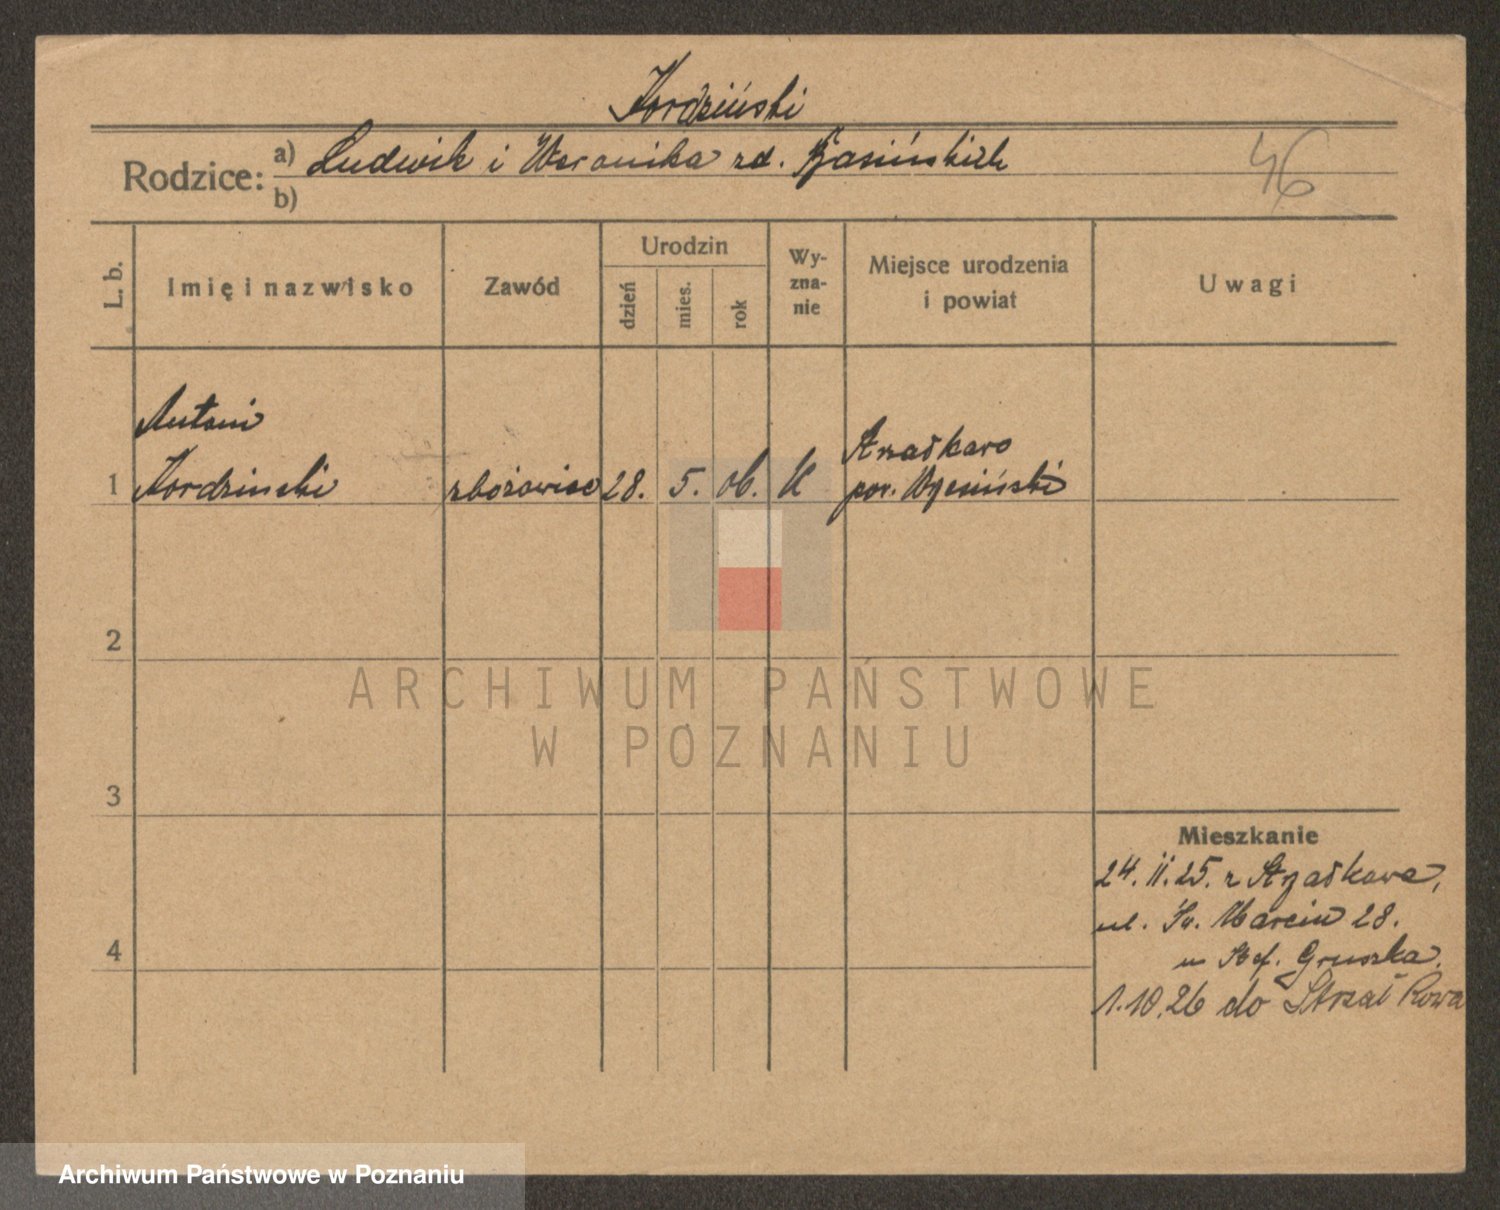 Kordziński
Rodzice: a) Ludwik i Weronika zd. Jasińskich
b)
46
L. b.
Imię i nazwisko
Zawód
Urodzin
dzień
mies.
rok
Wy-
zna-
nie
Miejsce urodzenia
i powiat
Uwagi
Antoni
Strzałkowo
1 Kordzinski zbożowiec 28. 5. 06. K pow. Wrzesiński
2
3
4
Mieszkanie
24. II. 25. z Strzałkowa,
ul. Św. Marcin 28.
u Stef. Gruszka.
1.10.26 do Strzałkowa
ARCHIWUM PAŃSTWOWE
W POZNANIU
Archiwum Państwowe w Poznaniu